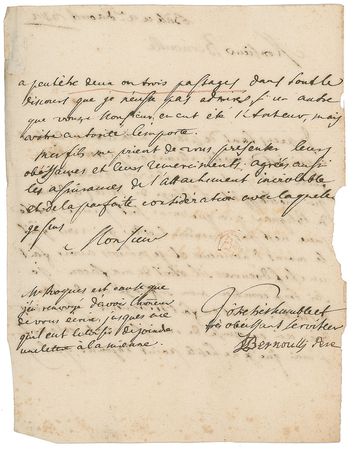 a peutètre deux ou trois passages dans tout le
discours que je n'eusse pas admis si un autre
que vous, Monsieur, en eut été l'Auteur, mais
votre autorité l'emporte.
Mes fils me prient de vous présenter leurs
obeissances et leurs remercimens. agrées aussi
les assurances de l'Attachement inviolable
et de la parfaite consideration avec laquelle
je suis
Monsieur
Mr Roques est cause que
j'ai renvoyé d'avoir l'honneur
de vous ecrire jusques à ce
qu'il eut le tems de joindre
une lettre à la mienne.
Votre tres humble et
tres obeissant serviteur
JBernoulli Pere